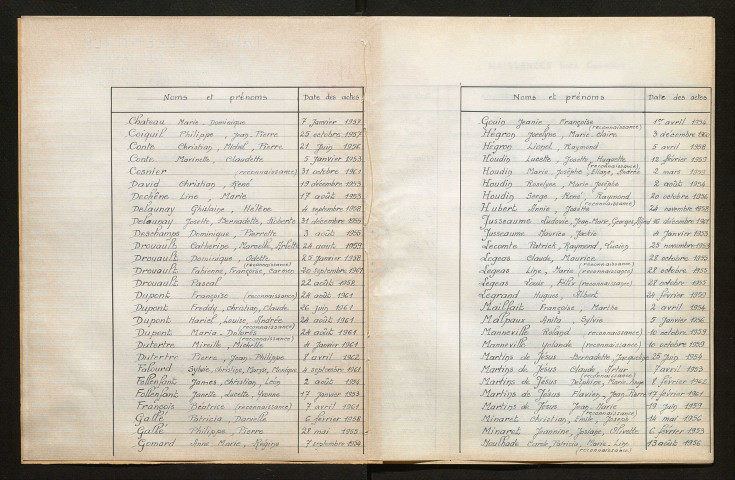 Noms et prénoms Date des actes
Chateau Marie-Dominique 7 Janvier 1957
Coiguil Philippe, Jean-Pierre 25 octobre 1957
Conte Christian, Michel, Pierre 21 Juin 1956
Conte Marinette, Claudette 5 Janvier 1953
Cosnier (reconnaissance) 31 octobre 1961
David Christian, René 19 décembre 1953
Dechêne Line, Marie 17 août 1953
Delaunay Ghislaine, Hélène 4 septembre 1958
Delaunay Josette, Bernadette, Alberte 31 décembre 1953
Deschamps Dominique, Pierrette 3 août 1956
Drouault Catherine, Marcelle, Arlette 24 août 1959
Drouault Dominique, Odette 25 Janvier 1958
(reconnaissance)
Drouault Fabienne, Françoise, Carmen 20 Septembre 1961
Drouault Pascal 22 août 1958
Dupont Françoise (reconnaissance) 24 août 1961
Dupont Freddy, Christian, Claude 26 Juin 1961
Dupont Muriel, Louise, Andrée 24 août 1961
(reconnaissance)
Dupont Maria-Dolorès 24 août 1961
(reconnaissance)
Dutertre Mireille, Michelle 4 Janvier 1961
Dutertre Pierre, Jean-Philippe 8 avril 1962
Falourd Sylvie, Christine, Marie, Monique 4 septembre 1961
Follenfant James, Christian, Loïg 2 août 1954
Follenfant Janette, Lucette, Yvonne 17 Janvier 1953
François Béatrice (reconnaissance) 7 avril 1961
Gallé Patricia, Danielle 6 février 1958
Gallé Philippe, Pierre 28 mai 1953
Gemard Anne-Marie, Régine 7 septembre 1954
Noms et prénoms Date des actes
Gouin Jeanie, Françoise 1er avril 1954
(reconnaissance)
Hégron Jocelyne, Marie-Claire 3 décembre 1960
Hégron Lionel, Raymond 5 avril 1958
Houdin Lucette, Josette, Huguette 12 février 1953
(reconnaissance)
Houdin Marie-Josèphe, Eliane, Andrée 2 mars 1953
Houdin Roselyne, Marie-Josèphe 2 août 1954
Houdin Serge, René, Raymond 20 octobre 1956
Hubert Annie, Josette 24 novembre 1958
Jusseaume Ludovic, Jean-Marie, Georges, 16 décembre 1961
Jusseaume Maurice, Jackie 4 Janvier 1953
Lecomte Patrick, Raymond, Lucien 25 novembre 1953
Legeas Claude, Maurice 28 octobre 1953
(reconnaissance)
Legeas Line, Marie (reconnaissance) 28 octobre 1953
Legeas Louis, Félix (reconnaissance) 28 octobre 1953
Legrand Hugues, Albert 24 février 1953
Maillait Françoise, Marthe 2 avril 1954
Malpaux Anita, Sylvie 5 Janvier 1956
Manneville Roland (reconnaissance) 10 octobre 1959
Manneville Yolande (reconnaissance) 10 octobre 1959
Martins de Jésus Bernadette, Jacqueline 25 Juin 1954
Martins de Jésus Claude, Artur 7 avril 1953
(reconnaissance)
Martins de Jésus Delphine, Marie-Ange 8 février 1962
Martins de Jésus Flavien, Jean-Pierre 17 février 1961
Martins de Jésus Jean-Marie 19 Juin 1953
(reconnaissance)
Minaret Christian, Emile, Joseph 14 mai 1956
Minaret Jeannine, Josiane, Olivette 6 février 1953
Mouillade Carole, Patricia, Marie-Line 13 août 1956
(reconnaissance)